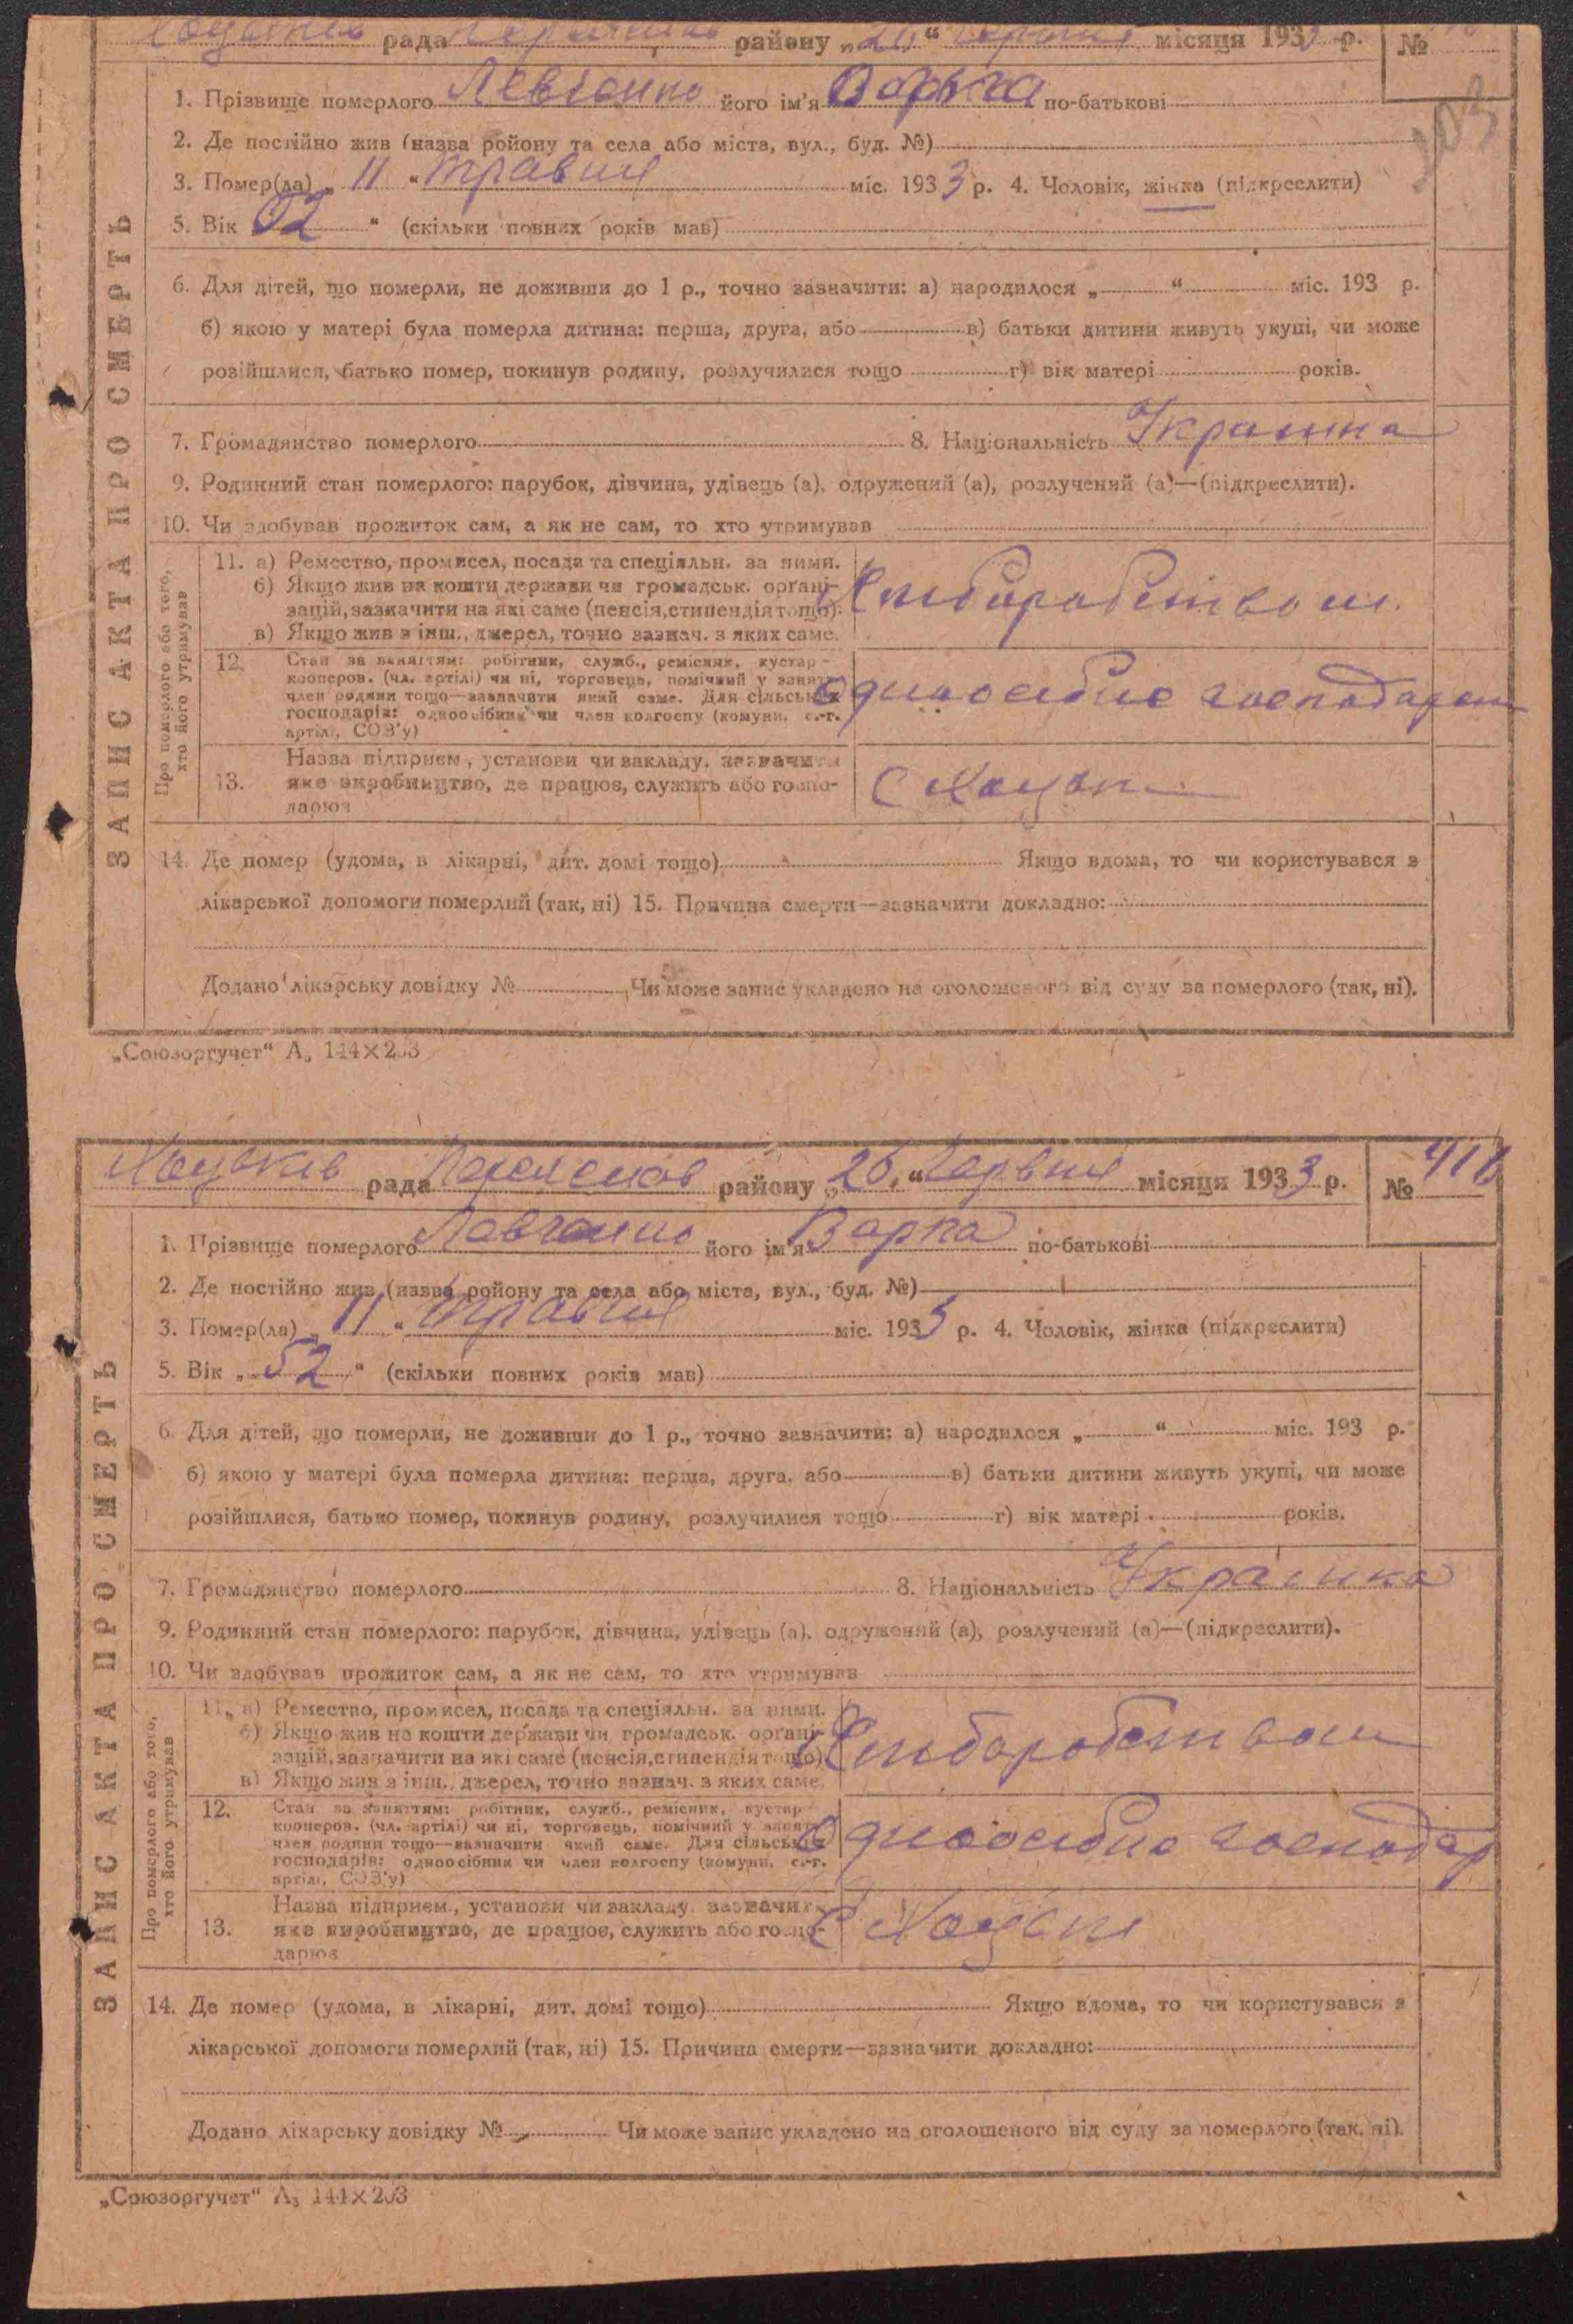 рада району „26“ місяця 193 р. №
1. Прізвище померлого Левченко його ім'я Варка по-батькові
2. Де постійно жив (назва ройону та села або міста, вул., буд. №)
3. Помер(ла) „11“ травня міс. 1933 р. 4. Чоловік, жінка (підкреслити)
5. Вік 52 “ (скільки повних років мав)
6. Для дітей, що померли, не доживши до 1 р., точно зазначити: а) народилося „ “ міс. 193 р.
б) якою у матері була померла дитина: перша, друга, або в) батьки дитини живуть укупі, чи може
розійшлися, батько помер, покинув родину, розлучилися тощо г) вік матері років.
7. Громадянство померлого 8. Національність Украинка
9. Родинний стан померлого: парубок, дівчина, удівець (а), одружений (а), розлучений (а)—(підкреслити).
10. Чи здобував прожиток сам, а як не сам, то хто утримував
ЗАПИС АКТА ПРО СМЕРТЬ
Про померлого або того, хто його утримував
11. а) Ремество, промисел, посада та спеціяльн. за ними.
б) Якщо жив на кошти держави чи громадськ. орґані-
зацій, зазначити на які саме (пенсія, стипендія тощо).
в) Якщо жив з інш., джерел, точно зазнач. з яких саме.
Хлиборобством
12. Стан за заняттям: робітник, служб., ремісник, кустар-
кооперов. (чл. артілі) чи ні, торговець, помічний у занятт.
член родини тощо—зазначити який саме. Для сільських
господарів: одноосібник чи член колгоспу (комуни, с.-г.
артілі, СОЗ'у)
Одноосибне господарст
13. Назва підприєм., установи чи закладу, зазначити
яке виробництво, де працює, служить або госпо-
дарює
С Хоцьки
14. Де помер (удома, в лікарні, дит. домі тощо) Якщо вдома, то чи користувався з
лікарської допомоги померлий (так, ні) 15. Причина смерти—зазначити докладно:
Додано лікарську довідку № Чи може запис укладено на оголошеного від суду за померлого (так, ні).
„Союзоргучет“ А₅ 144×203
Хоцьків рада району „26“ Червня місяця 1933 р. №
1. Прізвище померлого Левченко його ім'я Варка по-батькові
2. Де постійно жив (назва ройону та села або міста, вул., буд. №)
3. Помер(ла) „11“ травня міс. 1933 р. 4. Чоловік, жінка (підкреслити)
5. Вік „52“ (скільки повних років мав)
6. Для дітей, що померли, не доживши до 1 р., точно зазначити: а) народилося „ “ міс. 193 р.
б) якою у матері була померла дитина: перша, друга, або в) батьки дитини живуть укупі, чи може
розійшлися, батько помер, покинув родину, розлучилися тощо г) вік матері років.
7. Громадянство померлого 8. Національність Украінка
9. Родинний стан померлого: парубок, дівчина, удівець (а), одружений (а), розлучений (а)—(підкреслити).
10. Чи здобував прожиток сам, а як не сам, то хто утримував
ЗАПИС АКТА ПРО СМЕРТЬ
Про померлого або того, хто його утримував
11. а) Ремество, промисел, посада та спеціяльн. за ними.
б) Якщо жив на кошти держави чи громадськ. орґані-
зацій, зазначити на які саме (пенсія, стипендія тощо)
в) Якщо жив з інш., джерел, точно зазнач. з яких саме.
Хлиборобством
12. Стан за заняттям: робітник, служб., ремісник, кустар
кооперов. (чл. артілі) чи ні, торговець, помічний у занятт.
член родини тощо—зазначити який саме. Для сільських
господарів: одноосібник чи член колгоспу (комуни, с.-г.
артілі, СОЗ'у)
Одноосибне господар
13. Назва підприєм., установи чи закладу, зазначить
яке виробництво, де працює, служить або госпо-
дарює
С Хоцьки
14. Де помер (удома, в лікарні, дит. домі тощо) Якщо вдома, то чи користувався з
лікарської допомоги померлий (так, ні) 15. Причина смерти—зазначити докладно:
Додано лікарську довідку № Чи може запис укладено на оголошеного від суду за померлого (так, ні).
„Союзоргучет“ А₅ 144×203